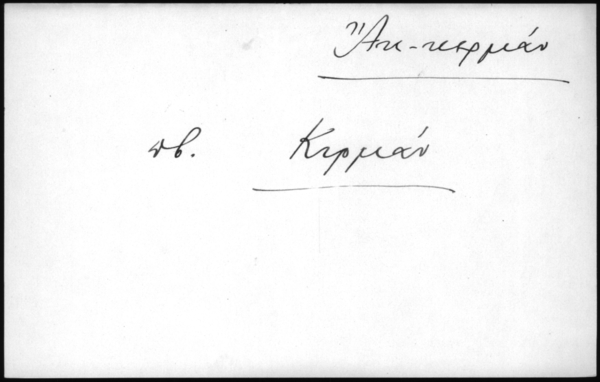 Ἂκ-κερμάν
πβ. Κιρμάν